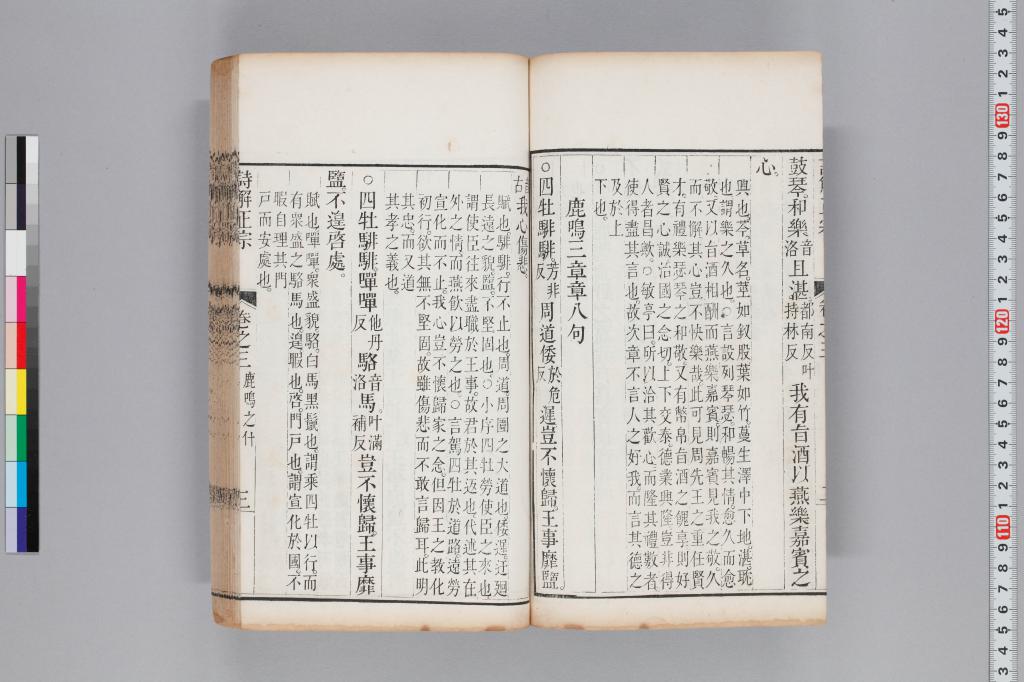 鼓琴。和樂音洛且湛都南反叶持林反我有旨酒以燕樂嘉賓之
心。
興也芩草名莖如釵股葉如竹蔓生澤中下地湛耽
也謂樂之久也。○言設列琴瑟和暢其情愈久而愈
敬又以旨酒相酬而燕樂嘉賓則嘉賓見我之敬久
而不懈其心豈不快樂哉此可見周先王之重任賢
才有禮樂瑟琴之和敬又有幣帛旨酒之
享則好
賢之心誠治國之念切上下交泰德業興隆豈非得
人者昌歟○敏亭曰所以洽其歡心而隆其禮數者
使得盡其言也故次章不言人之好我而言其德之
及於上
下也。
鹿鳴三章章八句
○四牡騑騑芳非反周道倭於危反遲豈不懷歸。王事靡盬。
我心傷悲。
賦也騑騑行不止也周道周圍之大道也倭遲迂廻
長遠之貌盬不堅固也○小序四牡勞使臣之來也
謂使臣往來盡職於王事故君於其返也代述其在
外之情而燕飲以勞之也○言駕四牡於道路遠勞
宣化而不止我心豈不懷歸家之念但因王之教化
初行欲其無不堅固故雖傷悲而不敢言歸耳此明
其忠而又道
其孝之義也。
○四牡騑騑嘽嘽他丹反駱音洛馬叶滿補反豈不懷歸王事靡
盬。不遑啓處。
賦也嘽嘽衆盛貌駱白馬黑鬣也謂乘四牡以行而
有衆盛之駱馬也遑暇也啓門戶也謂宣化於國不
暇自理其門
戶而安處也。
詩解正宗 卷之三 鹿鳴之什 三